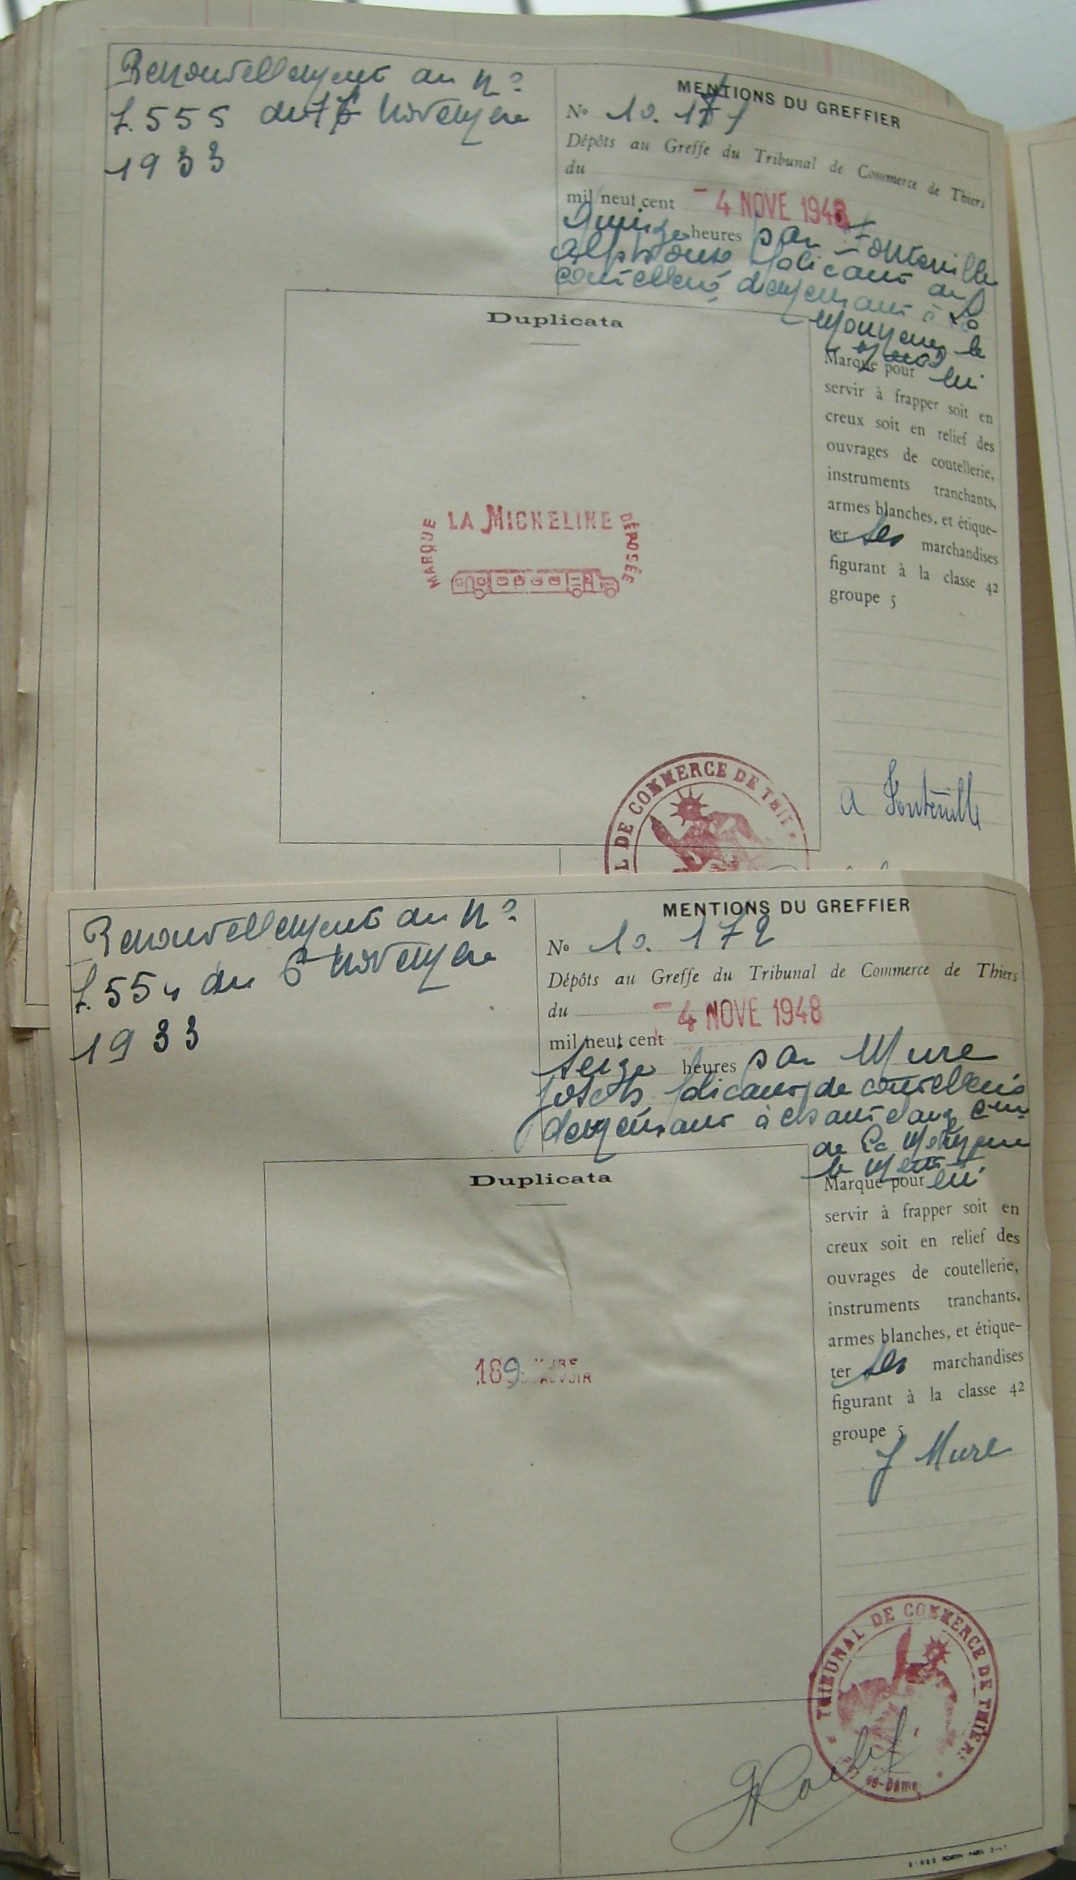 Renouvellement du n°
7.555 du 6 Novembre
1933
MENTIONS DU GREFFIER
N° 10.171
Dépôts au Greffe du Tribunal de Commerce de Thiers
du
mil neuf cent - 4 NOVE 1948
Quinze heures par Fonteuille
Alphonse fabricant de
coutellerie demeurant à La
Monnerie le
Montel
Duplicata
Marque pour lui
servir à frapper soit en
creux soit en relief des
ouvrages de coutellerie,
instruments tranchants,
armes blanches, et étique-
ter ses marchandises
figurant à la classe 42
groupe 5
MARQUE LA MICHELINE DÉPOSÉE
A Fonteuille
L DE COMMERCE DE THIE
Renouvellement du n°
7.554 du 6 Novembre
1933
MENTIONS DU GREFFIER
N° 10.172
Dépôts au Greffe du Tribunal de Commerce de Thiers
du
mil neuf cent - 4 NOVE 1948
Seize heures par Mure
Joseph fabricant de coutellerie
demeurant à Cne
de La Monnerie
le Montel
Duplicata
Marque pour lui
servir à frapper soit en
creux soit en relief des
ouvrages de coutellerie,
instruments tranchants,
armes blanches, et étique-
ter ses marchandises
figurant à la classe 42
groupe 5
189 MURE
J Mure
TRIBUNAL DE COMMERCE DE THIERS